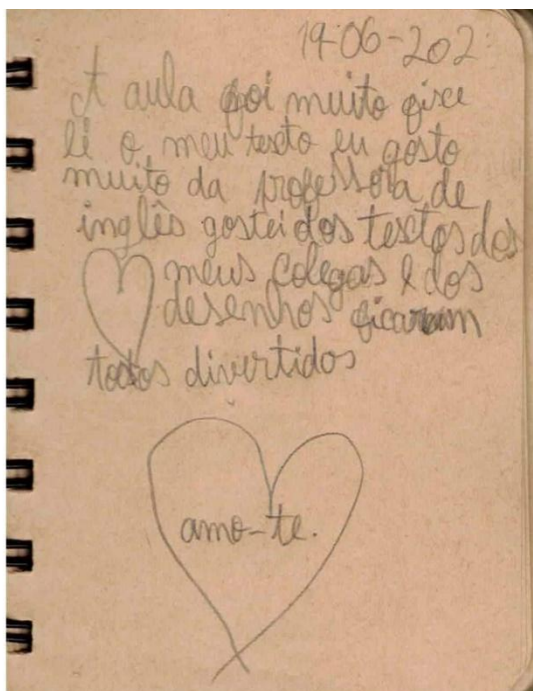 19-06-202
A aula foi muito fixe
li o meu texto eu gosto
muito da professora de
inglês gostei dos textos dos
meus colegas e dos
desenhos ficaram
todos divertidos
amo-te.